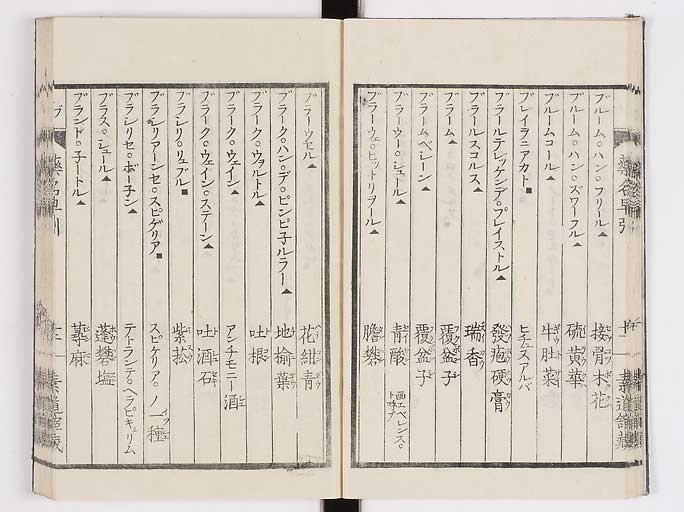 ブルーム。ハン。フリール▲ 接骨木花
ブルーム。ハン。ズワーフル▲ 硫黄華
ブルームコール▲ 牛肚菜
ブレイラニアカト■ ヒチュスアルバ
ブラールテレッケンデ。プレイストル▲ 發疱硬膏
ブラールスコルス▲ 瑞香
ブラーム▲ 覆盆子
ブラームベレーン▲ 覆盆子
ブラーウー。シュール▲ 青酸
ブラーウェ。ヒットリヲール▲ 膽礬
藥名早引
ブラーウセル▲ 花紺青
ブラーク。ハン。デ。ピンピ子ルラー▲ 地榆葉
ブラーク。ウヲルトル▲ 吐根
ブラーク。ウェイン▲ アンチモニー酒
ブラーク。ウェイン。ステーン▲ 吐酒石
ブラシリ。リュブル■ 紫菘
ブラシリアーンセ。スピゲリア■ スピケリア。ノ一種
ブラシリセ。ボー子ン▲ テトランテ。ヘラピキュリム
ブラス。シュール▲ 蓬礬塩
ブランド。子ートル▲ 蕁麻
ブ 藥名早引